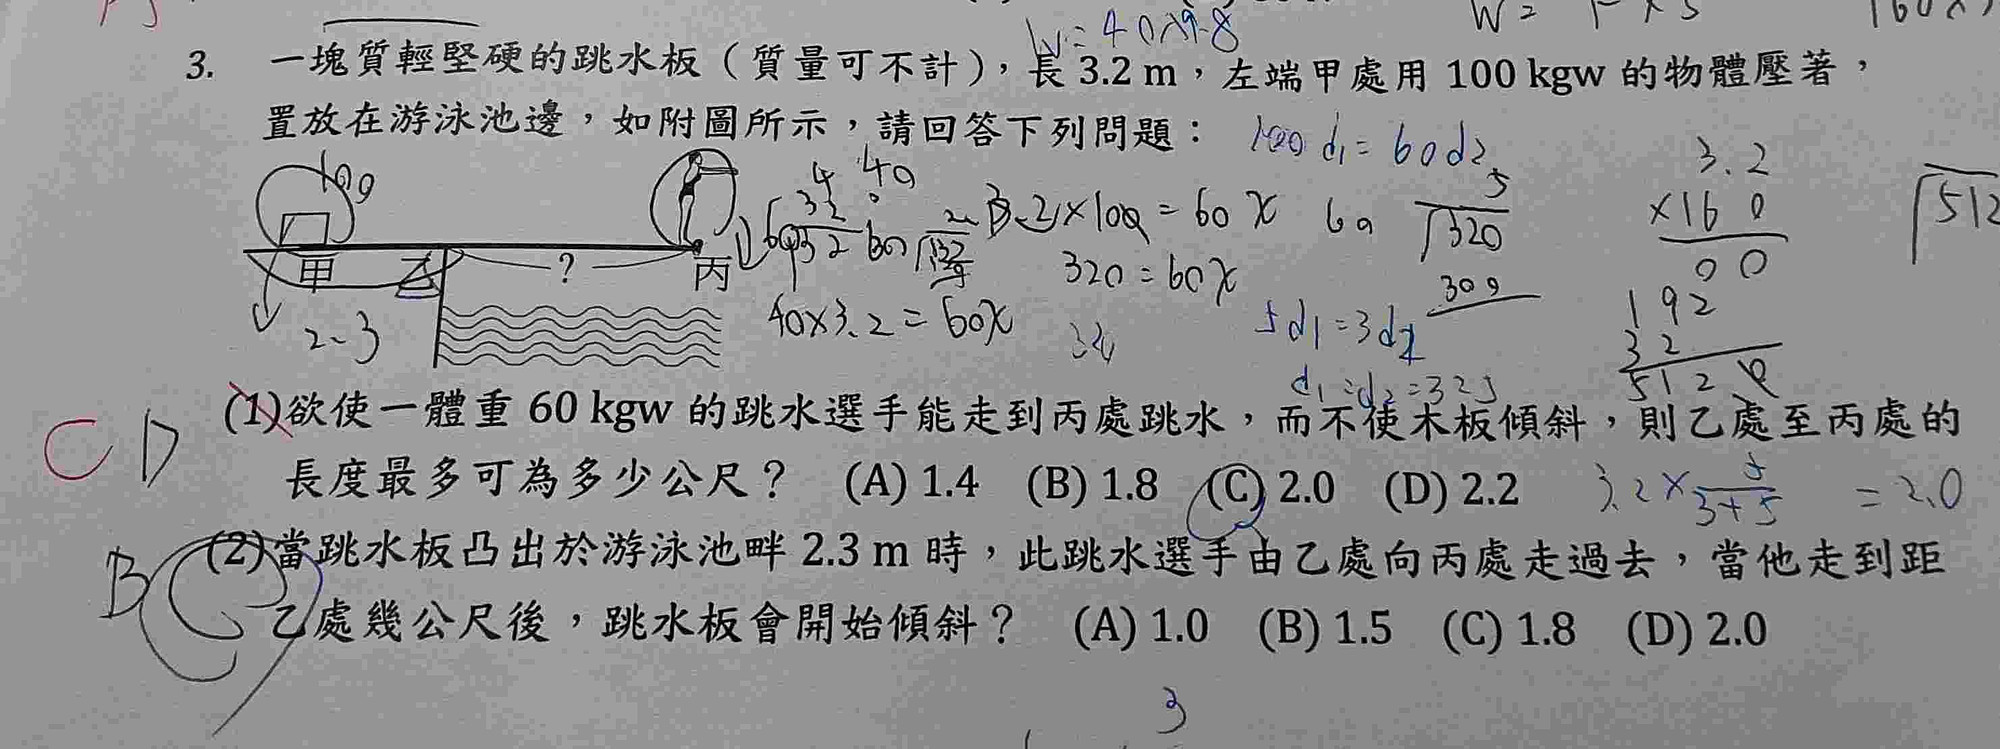 W=40×9.8
W=
3. 一塊質輕堅硬的跳水板（質量可不計），長 3.2 m，左端甲處用 100 kgw 的物體壓著，
置放在游泳池邊，如附圖所示，請回答下列問題：
100 d₁ = 60 d₂
3.2
×160
00
192
32
512
100
甲
乙
?
丙
2.3
40
3.2×100 = 60x
320 = 60x
40×3.2 = 60x
60
5
320
300
512
5d₁ = 3d₂
(1)欲使一體重 60 kgw 的跳水選手能走到丙處跳水，而不使木板傾斜，則乙處至丙處的
長度最多可為多少公尺？ (A) 1.4 (B) 1.8 (C) 2.0 (D) 2.2
C D
3.2×5/(3+5) = 2.0
(2)當跳水板凸出於游泳池畔 2.3 m 時，此跳水選手由乙處向丙處走過去，當他走到距
乙處幾公尺後，跳水板會開始傾斜？ (A) 1.0 (B) 1.5 (C) 1.8 (D) 2.0
B
3